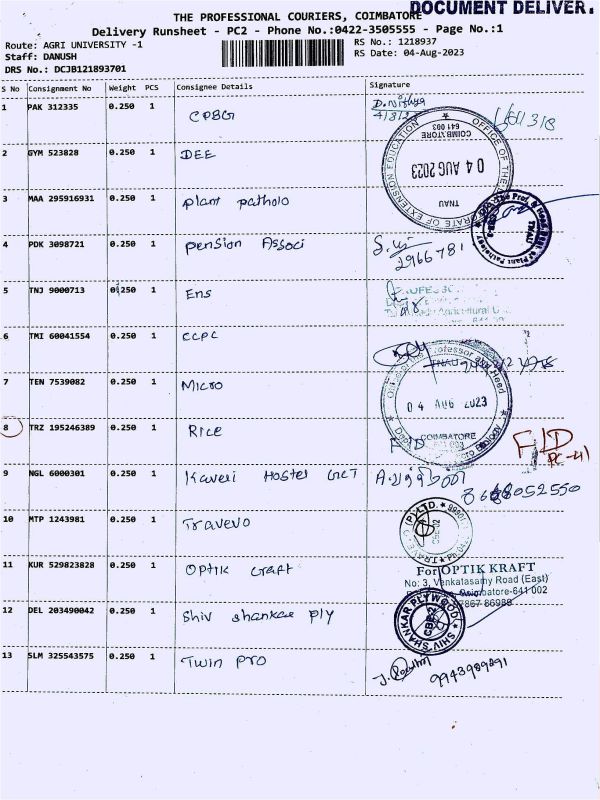 DOCUMENT DELIVER.
THE PROFESSIONAL COURIERS, COIMBATORE
Delivery Runsheet - PC2 - Phone No.:0422-3505555 - Page No.:1
Route: AGRI UNIVERSITY -1
RS No.: 1218937
Staff: DANUSH
RS Date: 04-Aug-2023
DRS No.: DCJB121893701
S No Consignment No Weight PCS Consignee Details Signature
1 PAK 312335 0.250 1 CPBG
2 GYM 523828 0.250 1 DEE
OFFICE OF THE
EXTENSION EDUCATION
COIMBATORE
641 003
04 AUG 2023
TNAU
3 MAA 295916931 0.250 1 plant patholo
4 PDK 3098721 0.250 1 pension Associ
2966781
5 TNJ 9000713 0.250 1 Ens
6 TMI 60041554 0.250 1 CCPC
7 TEN 7539082 0.250 1 Micro
TNAU
Professor and Head
04 AUG 2023
COIMBATORE
8 TRZ 195246389 0.250 1 Rice
9 NGL 6000301 0.250 1 Kaveri Hostel GCT
10 MTP 1243981 0.250 1 Travevo
11 KUR 529823828 0.250 1 Optik craft
For OPTIK KRAFT
No: 3, Venkatasamy Road (East)
Coimbatore-641 002
12 DEL 203490042 0.250 1 Shiv shankar ply
SHIV SHANKAR PLYWOOD
CBE-2
13 SLM 325543575 0.250 1 Twin pro
9943989891